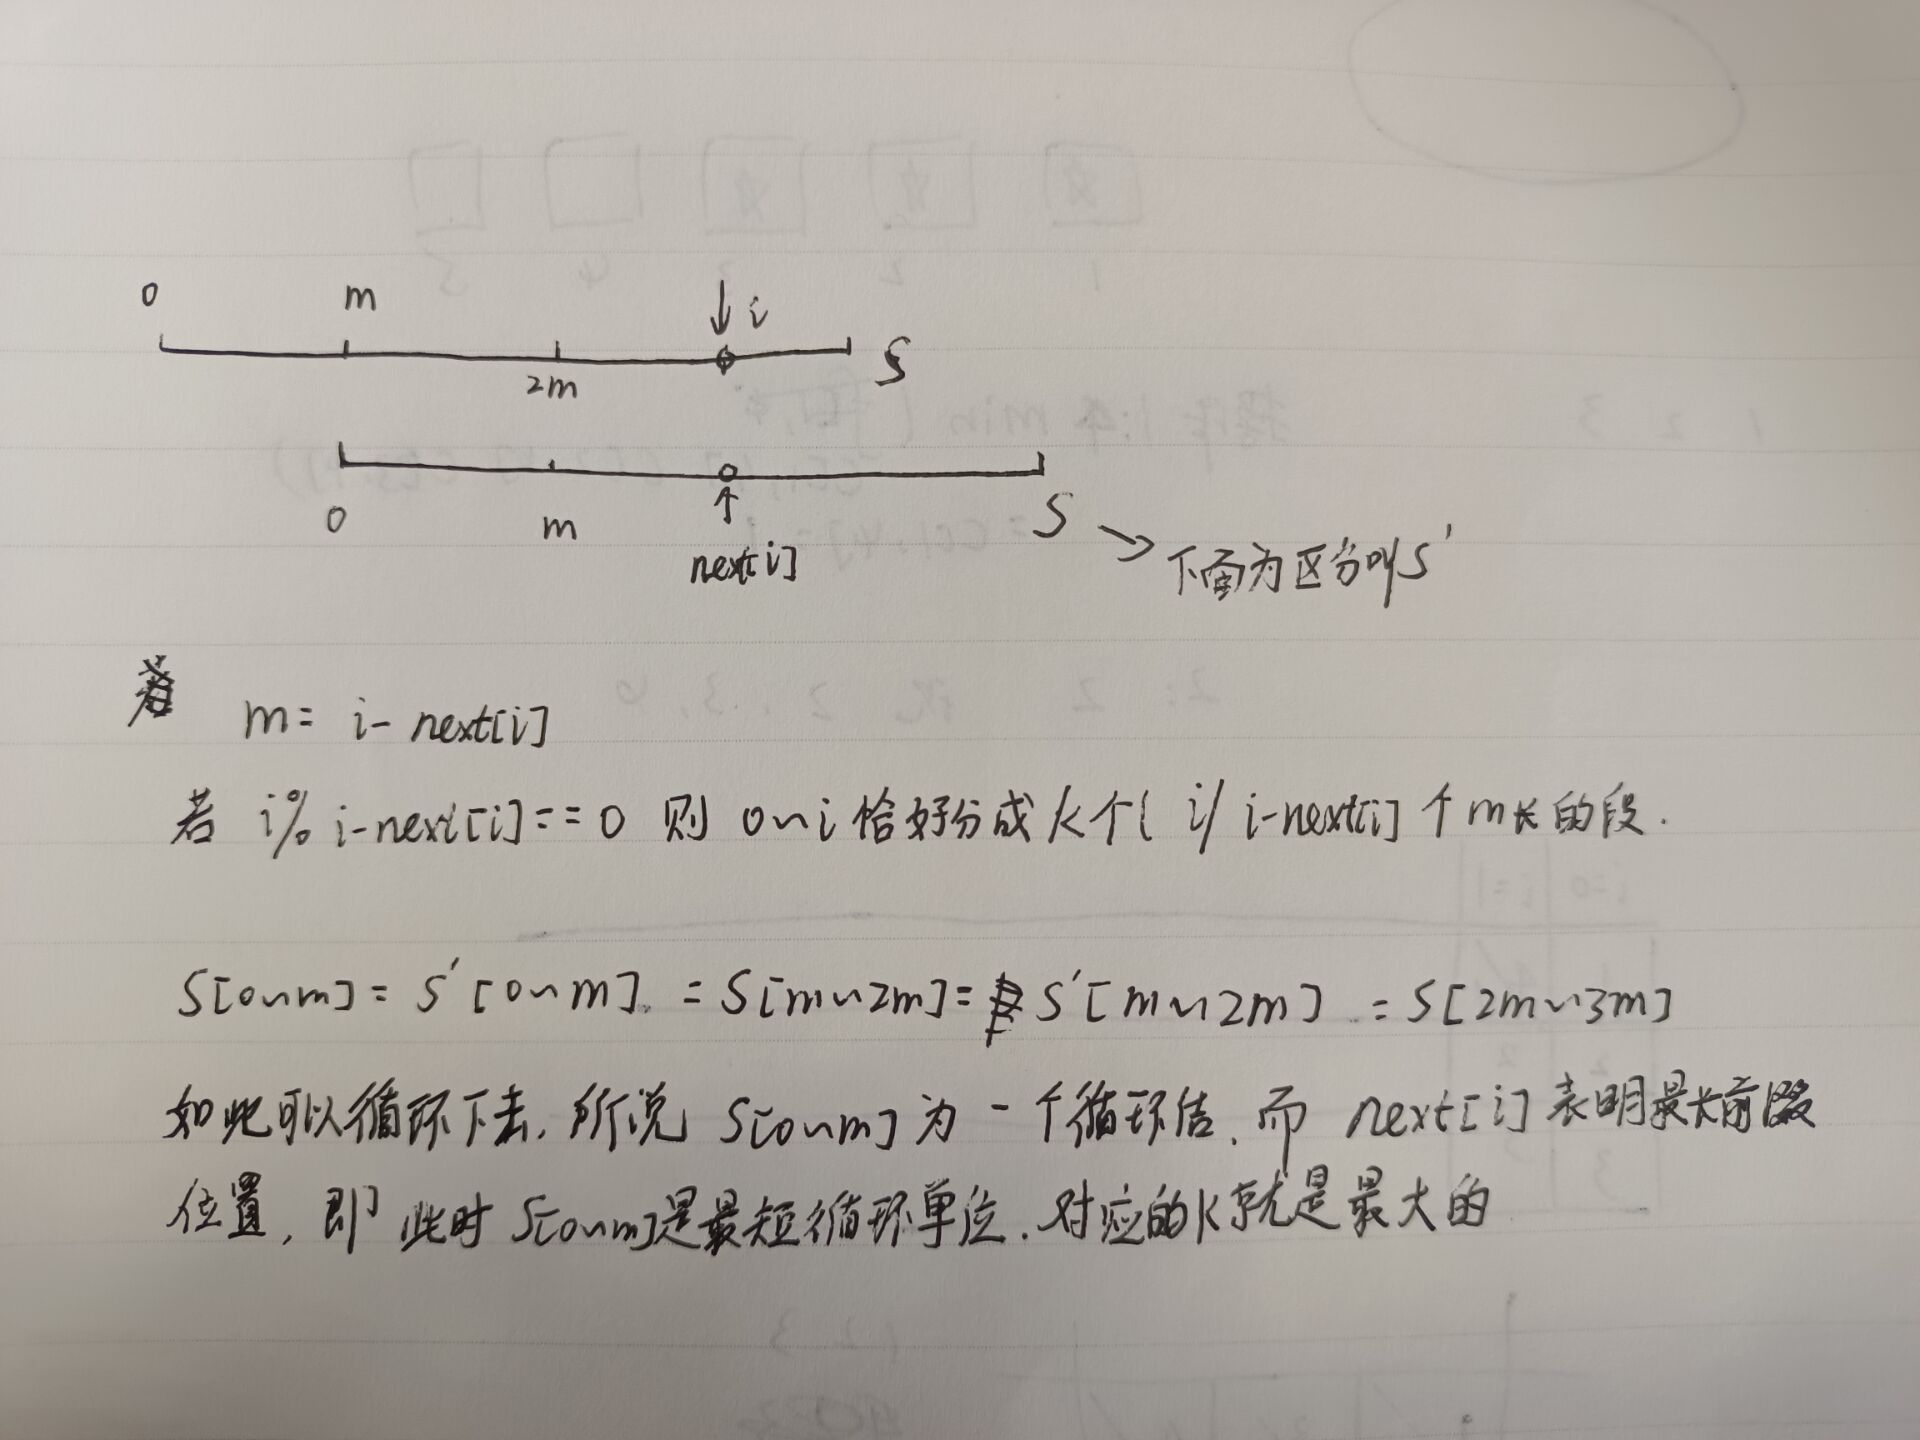 0 m ↓ i
2m S
0 m ↑ S
next[i] → 下面为区分叫S'
m = i - next[i]
若 i % i-next[i] == 0 则 0~i 恰好分成 k个( i/ i-next[i] 个 m长的段.
S[0~m] = S'[0~m] = S[m~2m] = S'[m~2m] = S[2m~3m]
如此可以循环下去, 所说 S[0~m] 为一个循环结, 而 next[i] 表明最长前缀
位置, 即 此时 S[0~m]是最短循环单位. 对应的k就是最大的